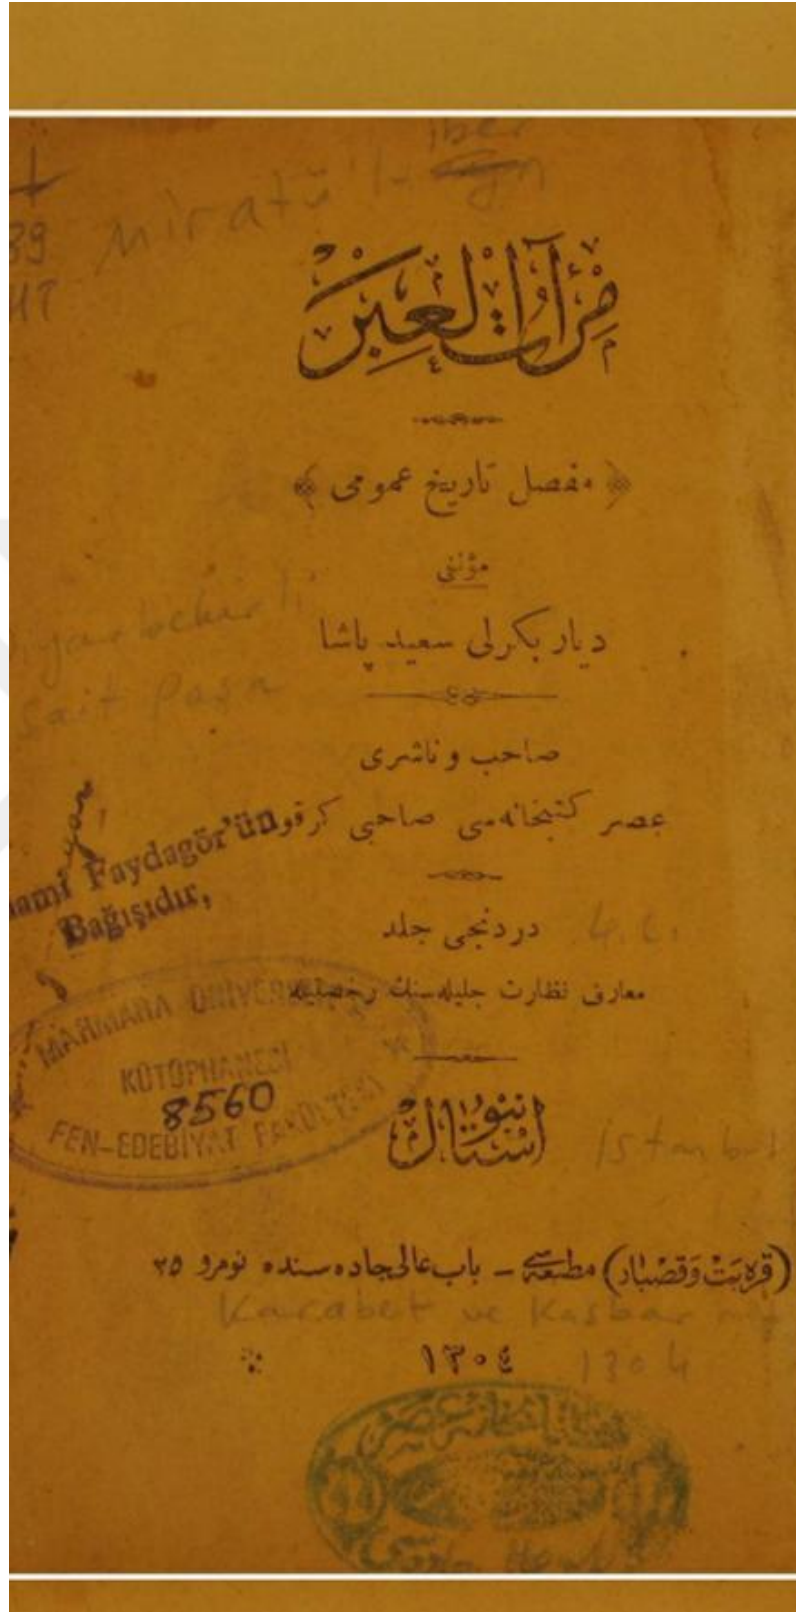 iber
Miratü'l-
39
مِرْآتُ الْعِبَرْ
﴿ مفصل تاریخ عمومی ﴾
مؤلفی
دیار بکرلی سعید پاشا
Diyarbekirli
Sait Paşa
صاحب و ناشری
عصر کتبخانه‌سی صاحبی کرقور
Faydagör'ün
Bağışıdır,
دردنجی جلد
4. c.
معارف نظارت جلیله‌سنك رخصتیله
MARMARA ÜNİVERSİTESİ
KÜTÜPHANESİ
8560
FEN-EDEBİYAT FAKÜLTESİ
استانبول
istanbul
(قره‌بت و قصبار) مطبعه‌سی – باب عالی جاده سنده نومرو ٢٥
Karabet ve Kasbar mat
١٣٠٤
1304